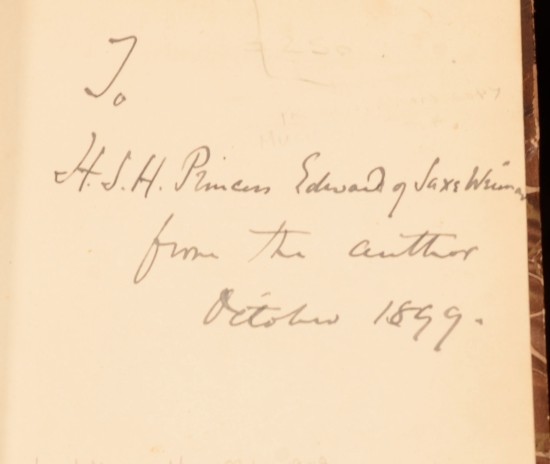 To
H.S.H. Princess Edward of Saxe Weimar
from the author
October 1899.